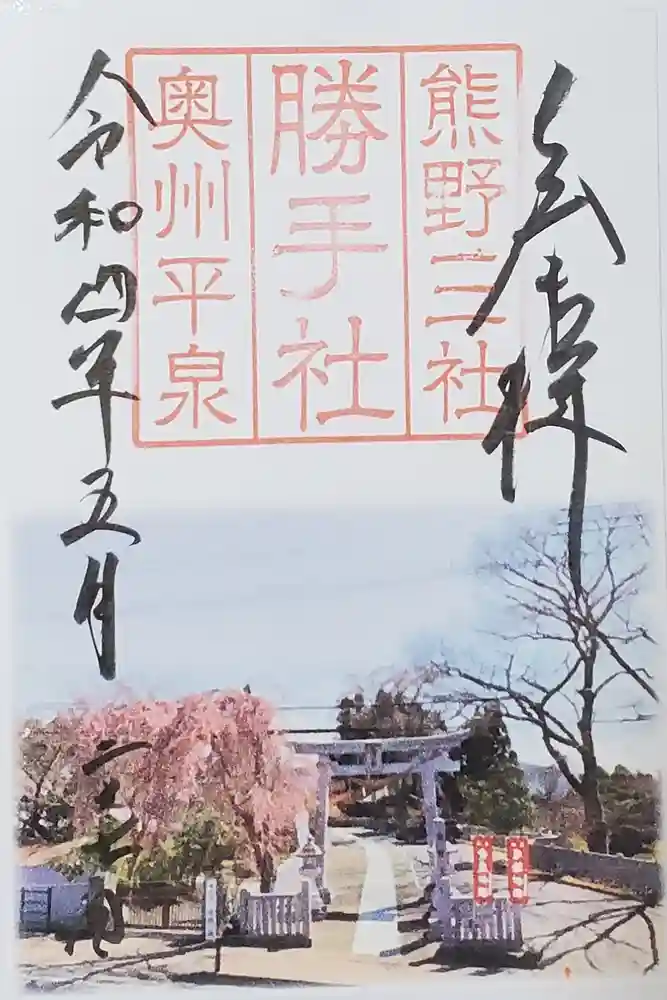 奉拝
熊野三社
勝手社
奥州平泉
令和四年五月二十五日